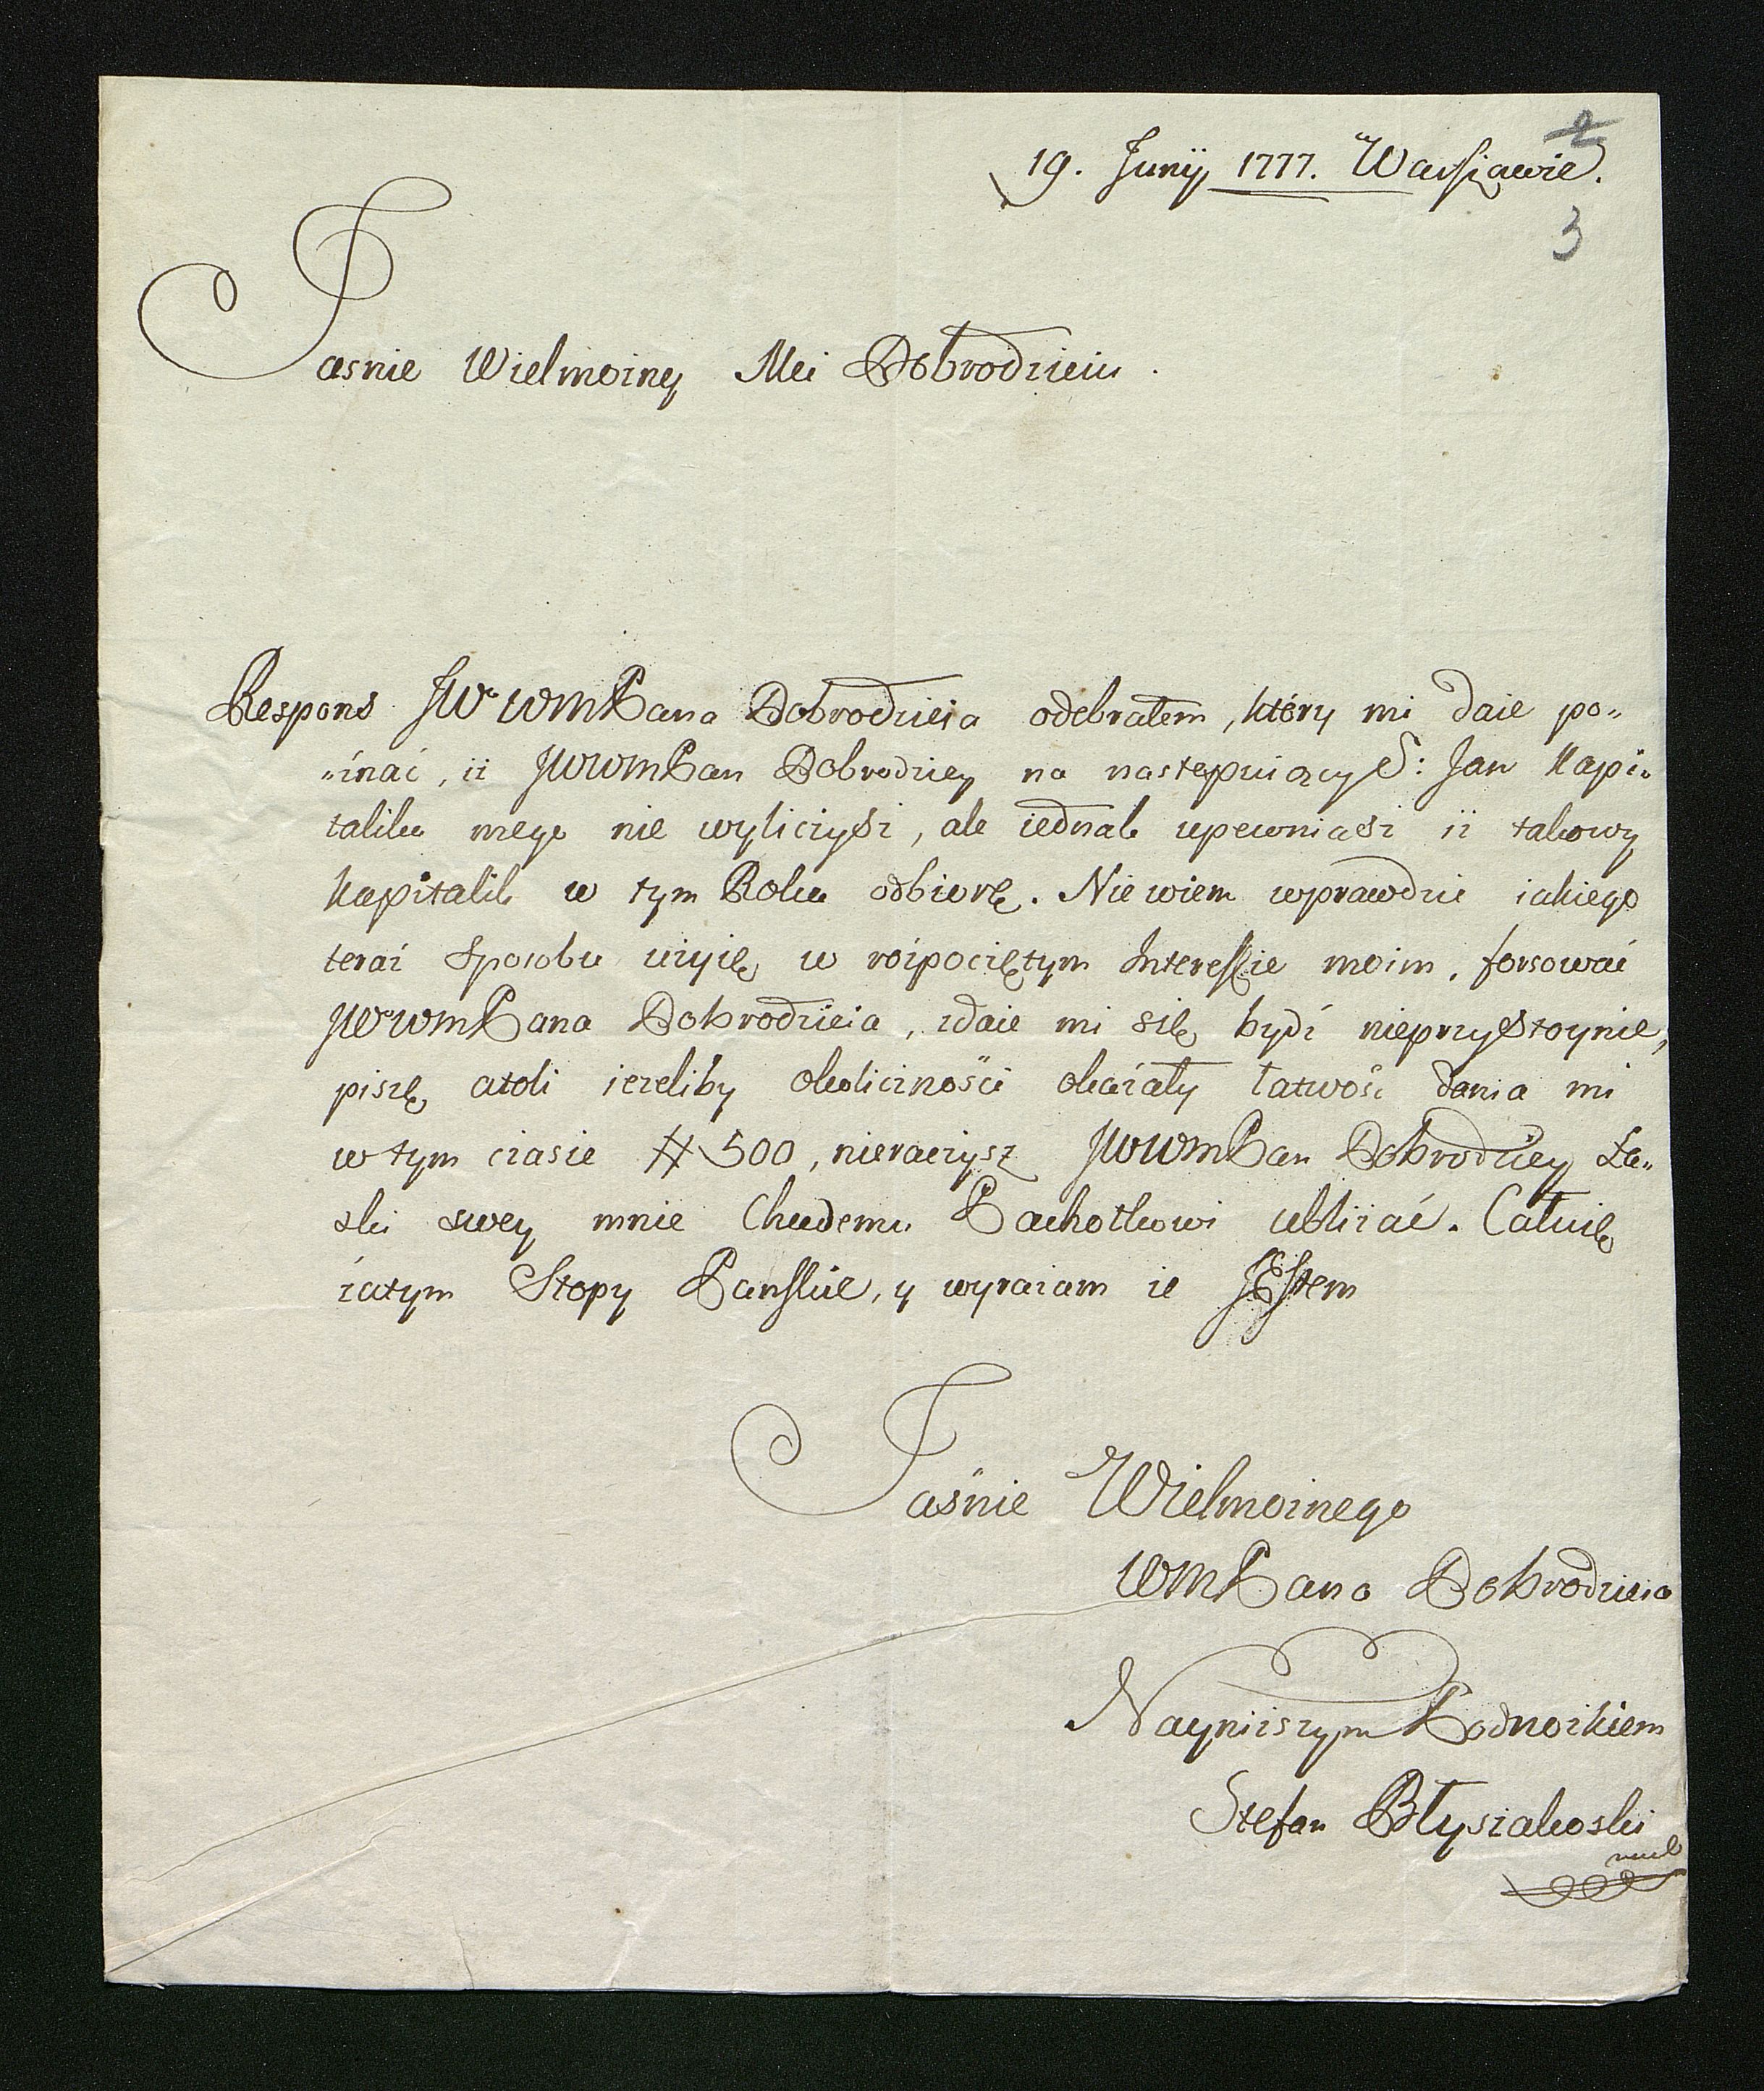 2
19. Junÿ 1777. Warszawie.
3
Jasnie Wielmożny Mci Dobrodzieiu.
Respons JW WMPana Dobrodzieia odebrałem, który mi daie po„
„znać, iż JWWMPan Dobrodziey na nastepuiący S: Jan Kapi„
taliku mego nie wyliczysz, ale iednak upewniasz iż takowy
Kapitalik w tym Roku odbiorę. Nie wiem wprawdzie iakiego
teraz Sposobu użyię w rozpoczętym Interessie moim, forsować
JWWMPana Dobrodzieia, zdaie mi się bydź nieprzystoynie,
piszę atoli ieżeliby okoliczności okazały łatwość dania mi
w tym czasie # 500, nieraczysz JWWMPan Dobrodziey Ła„
ski swey mnie Chudemu Pachołkowi ubliżać. Całuię
zatym Stopy Panskie, y wyrażam że JEstem
Jaśnie Wielmożnego
WMPana Dobrodzieia
Nayniższym Podnożkiem
Stefan Błyszakoski